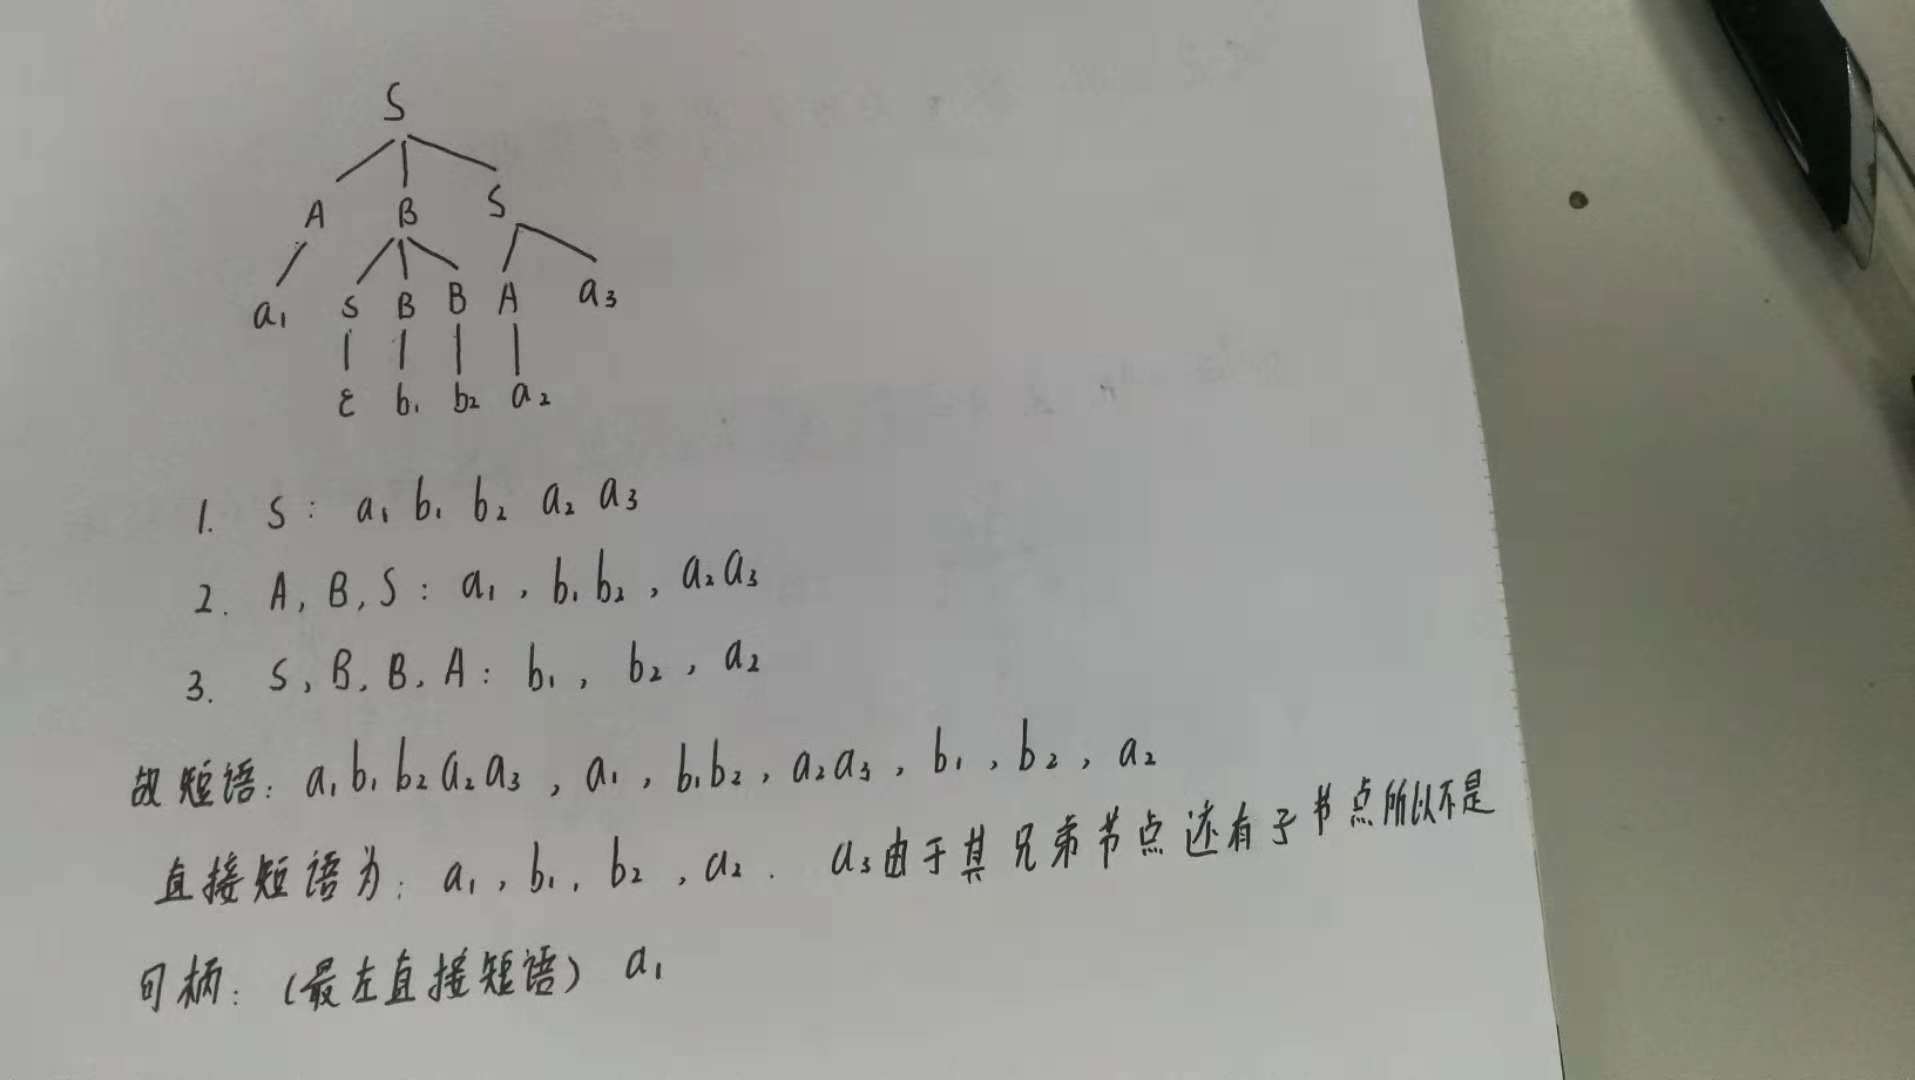 S
A B S
a₁ S B B A a₃
ε b₁ b₂ a₂
1. S: a₁ b₁ b₂ a₂ a₃
2. A, B, S: a₁, b₁b₂, a₂a₃
3. S, B, B, A: b₁, b₂, a₂
故短语: a₁b₁b₂a₂a₃, a₁, b₁b₂, a₂a₃, b₁, b₂, a₂
直接短语为: a₁, b₁, b₂, a₂. a₃由于其兄弟节点还有子节点所以不是
句柄: (最左直接短语) a₁